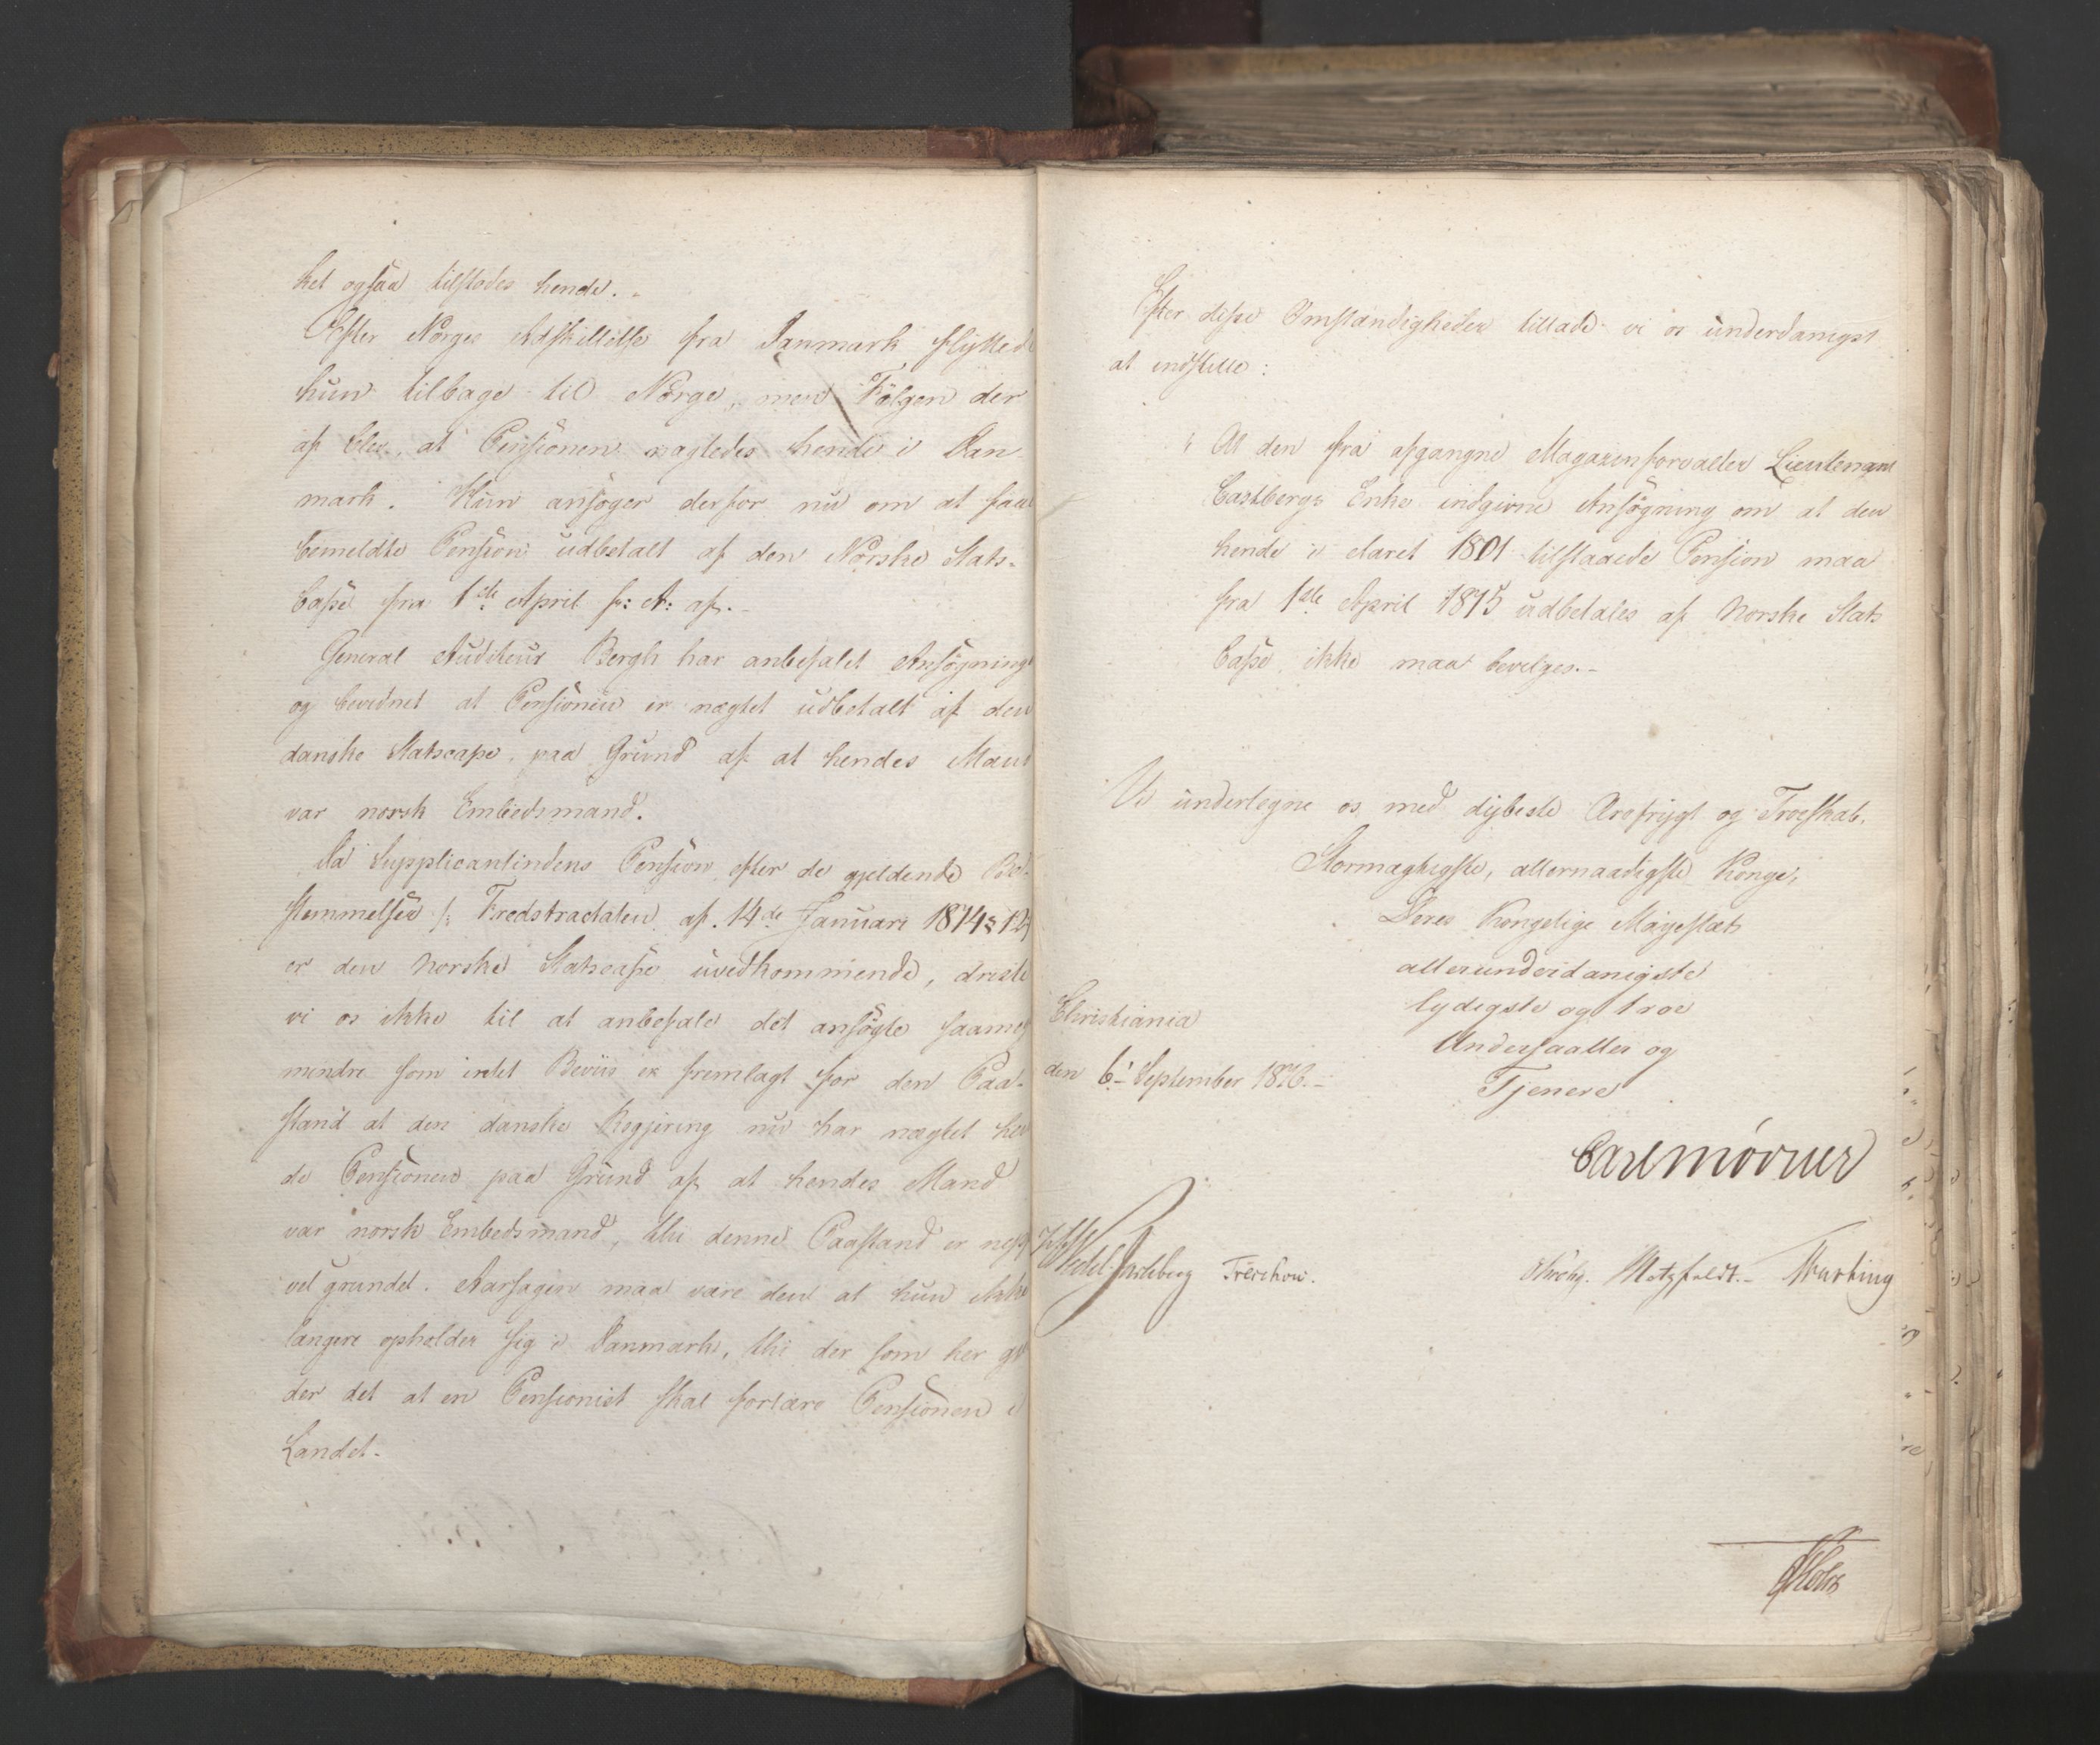 ket ogsaa tilstodes hende.
Efter Norges Adskillelse fra Danmark flyttede
hun tilbage til Norge, men Fölgen der
af blev, at Pensionen nægtedes hende i Dan-
mark. Hun ansøger derfor nu om at faae
bemeldte Pension udbetalt af den Norske Stats-
Casse fra 1ste April f: A: af.-
General Auditeur Bergh har anbefalet Ansögningen
og bevidnet at Pensionen er nægtet udbetalt af den
danske Statscasse, paa Grund af at hendes Mand
var norsk Embedsmand.
Da Supplicantindens Pension efter de gjeldende Be-
stemmelser /: Fredstractaten af 14de Januari 1814 § 12
er den norske Statscasse uvedkommende, driste
vi os ikke til at anbefale det ansögte saameget
mindre som intet Beviis er fremlagt for den Paa-
stand at den danske Regjering nu har nægtet hen
de Pensionen paa Grund af at hendes Mand
var norsk Embedsmand, thi denne Paastand er neppe
vel grundet. Aarsagen maa være den at hun ikke
længere opholder sig i Danmark, thi der som her gjel
der det at en Pensionist skal fortære Pensionen i
Landet.
Efter disse Omstændigheder tillade vi os underdanigst
at indstille:
At den fra afgangne Magazinforvalter Lieutenant
Castbergs Enke indgivne Ansögning om at den
hende i Aaret 1801 tilstaaede Pension maa
fra 1ste April 1815 udbetales af Norske Stats
Casse, ikke maa bevilges.-
Vi undertegne os med dybeste Ærefrygt og Troeskab.
Stormægtigste, allernaadigste Konge,
Deres Kongelige Majestæts
allerunderdanigste
lydigste og troe
Undersaatter og
Tjenere
Christiania
den 6' September 1816.-
Carl Mörner
Wedel-Jarlsberg Treschow. Krohg. Motzfeldt.-
Holst